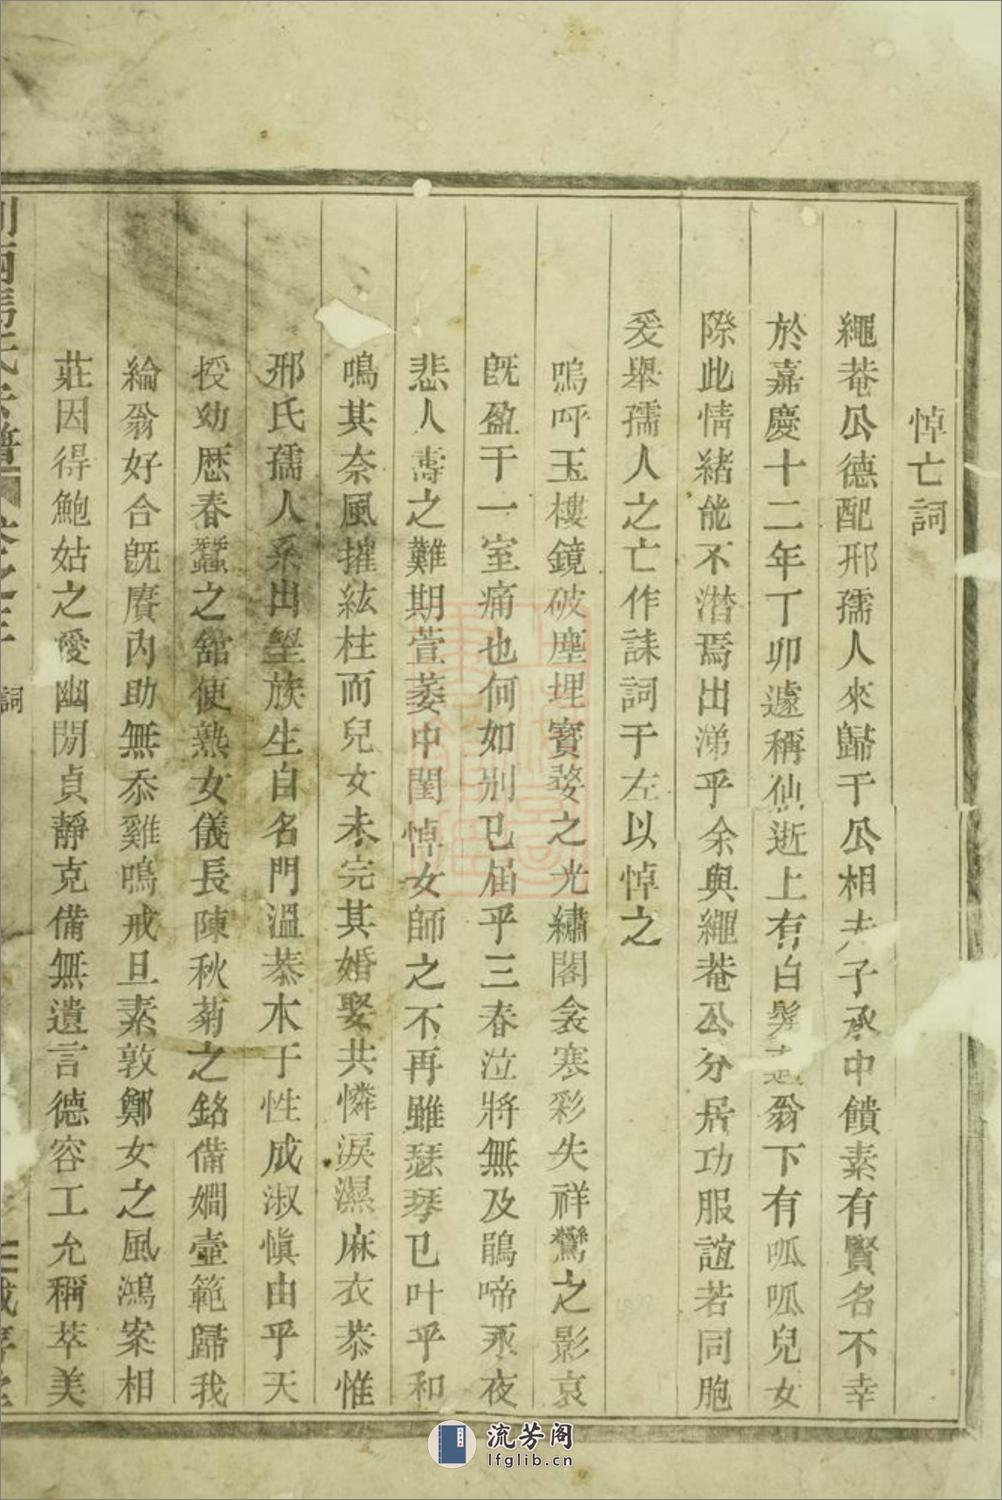 悼亡詞
繩菴公德配邢孺人來歸于公相夫子承中饋素有賢名不幸
於嘉慶十二年丁卯遽稱仙逝上有白髮翁下有呱呱兒女
際此情緒能不潸焉出涕乎余與繩菴公分居功服誼若同胞
爰舉孺人之亡作誄詞于左以悼之
嗚呼玉樓鏡破塵埋寶婺之光繡閣衾寒彩失祥鸞之影哀
旣盈于一室痛也何如別已屆乎三春泣將無及鵑啼永夜
悲人壽之難期萱萎中閨悼女師之不再雖瑟琴已叶乎和
鳴其奈風摧絃柱而兒女未完其婚娶共憐淚濕麻衣恭惟
邢氏孺人系出望族生自名門溫恭本于性成淑愼由乎天
授幼歷春蠶之舘便熟女儀長陳秋菊之銘備嫺壼範歸我
綸翁好合旣賡內助無忝雞鳴戒旦素敦鄭女之風鴻案相
莊因得鮑姑之愛幽閒貞靜克備無遺言德容工允稱萃美
詞
流芳阁
lfglib.cn